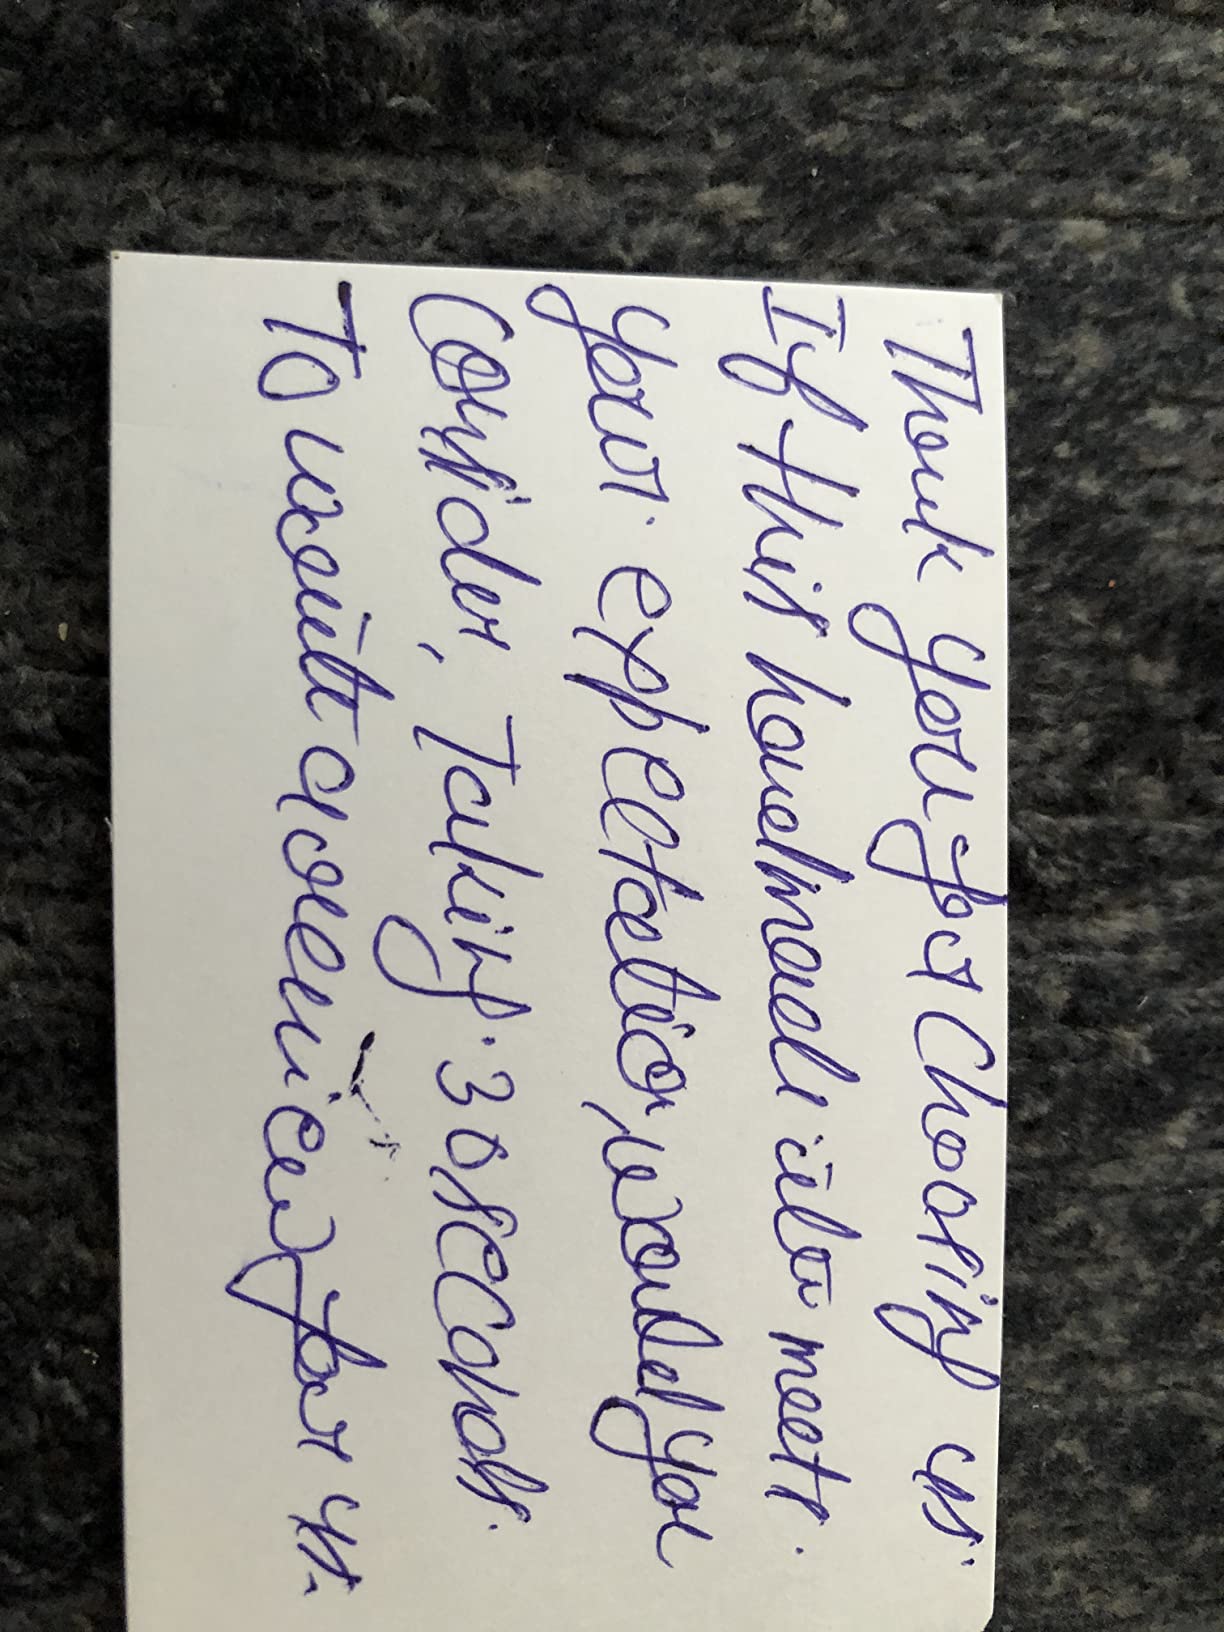 Thank you for Choosing us.
If this handmade item meets.
your expectation, would you
Consider, Taking 30 seconds.
To write a review for us.